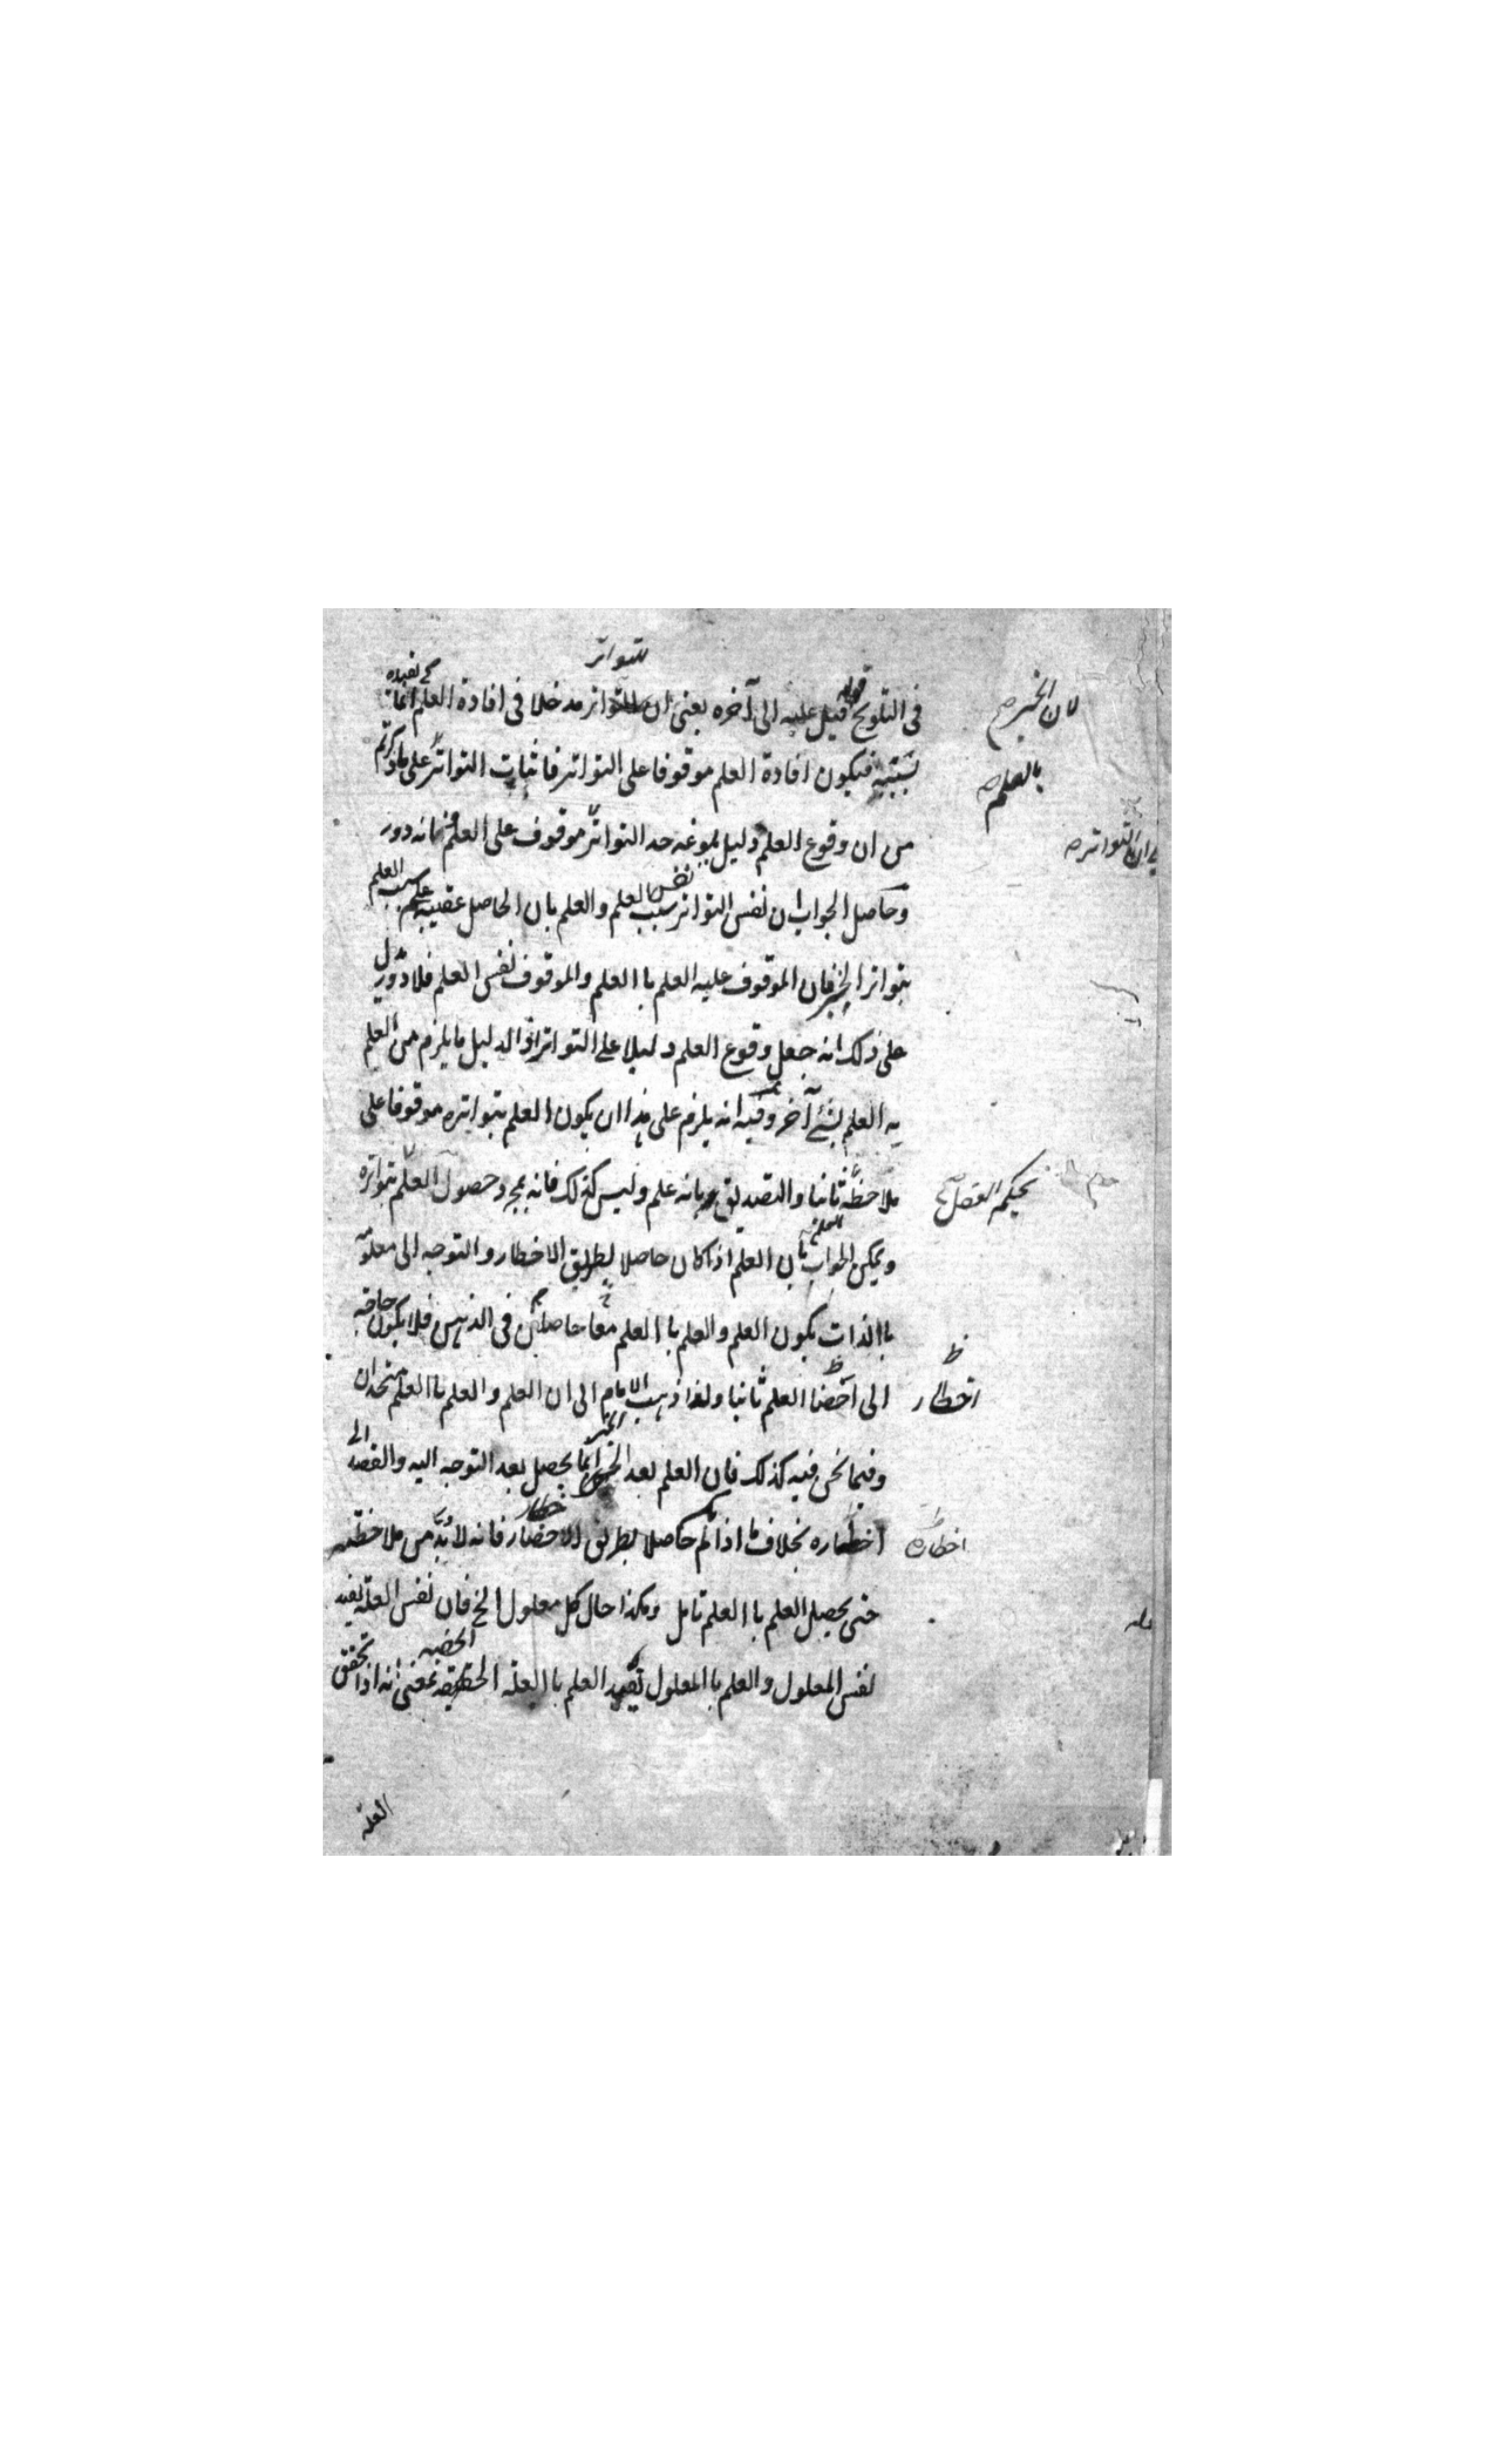 للتواتر
في التلويح قوله قيل عليه الى آخره يعنى ان للتواتر مدخلا في افادة العلم انما تفيده
لان الخبر صح
بسببه فيكون افادة العلم موقوفا على التواتر فاثبات التواتر على ما ذكرتم
بالعلم صح
من ان وقوع العلم دليل بلوغه حد التواتر موقوف على العلم فانه دور
ان التواتر صح
وحاصل الجواب ان نفس التواتر سبب نفس العلم والعلم بان الحاصل عقيبه علم سبب العلم
بتواتر الخبر فان الموقوف عليه العلم باالعلم والموقوف نفس العلم فلا دور
على ذلك انه جعل وقوع العلم دليلا على التواتر اذ الدليل ما يلزم من العلم
به العلم بشئ آخر وفيه انه يلزم على هذا ان يكون العلم بتواتره موقوفا على
ملاحظته ثانيا والتصديق بانه علم وليس كذلك فانه بمجرد حصول العلم بتواتره
ويمكن الجواب بان العلم اذا كان حاصلا بطريق الاخطار والتوجه الى معلومه
باالذات يكون العلم والعلم باالعلم معا حاصلين في الذهن فلا يكون حاجة
الى احضا العلم ثانيا ولذا ذهب الامام الى ان العلم والعلم باالعلم متحدان
اخطار
وفيما نحن فيه كذلك فان العلم بعد الخبر انما يحصل بعد التوجه اليه والقصد الى
اخطاره بخلاف ما اذا لم يكن حاصلا بطريق الاخطار فانه لا بد من ملاحظته
اخطاره
حتى يحصل العلم باالعلم تامل وهكذا حال كل معلول الخ فان نفس العلة يفيد
نفس المعلول والعلم باالمعلول تفيد العلم باالعلة الخفية بمعنى انه اذا تحقق
العلة